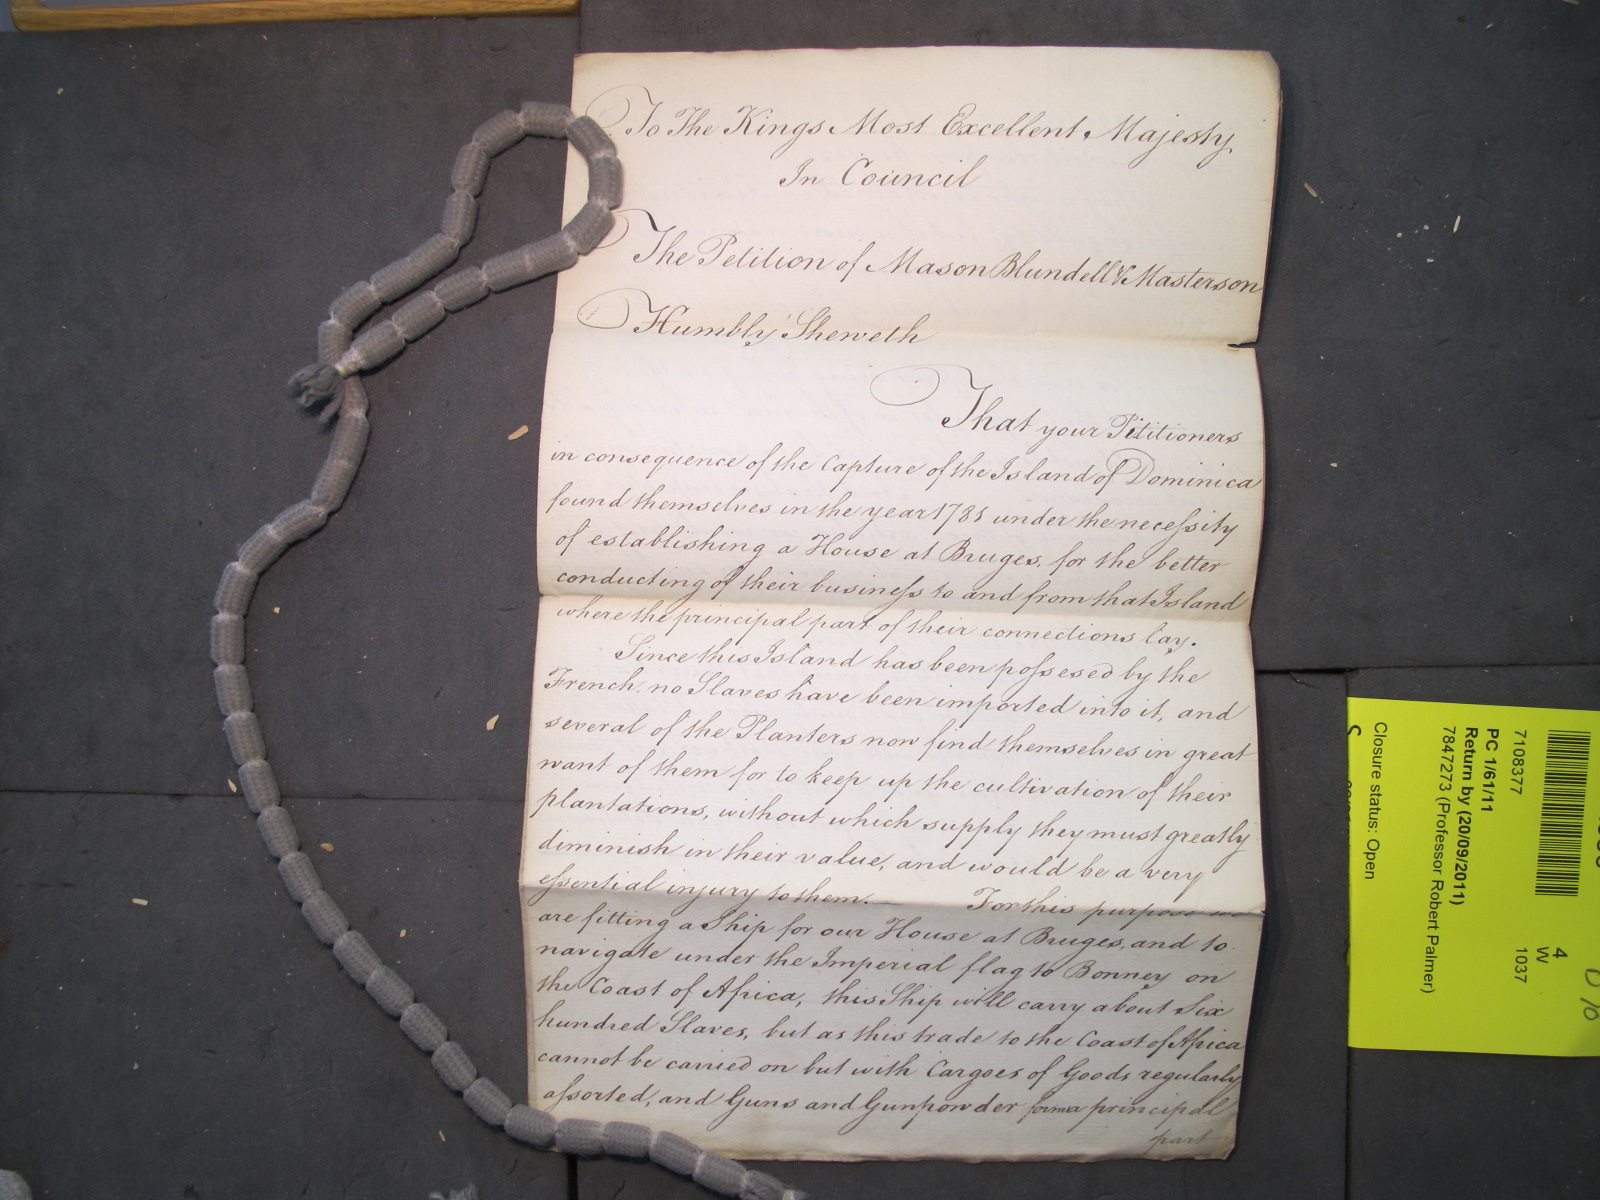 To The Kings Most Excellent Majesty
In Council
The Petition of Mason Blundell & Masterson
Humbly Sheweth
That your Petitioners
in consequence of the Capture of the Island of Dominica
found themselves in the year 1781 under the necessity
of establishing a House at Bruges, for the better
conducting of their business to and from that Island
where the principal part of their connections lay.
Since this Island has been possesed by the
French, no Slaves have been imported into it, and
several of the Planters now find themselves in great
want of them for to keep up the cultivation of their
plantations, without which supply they must greatly
diminish in their value, and would be a very
essential injury to them. — For this purpose we
are fitting a Ship for our House at Bruges, and to
navigate under the Imperial flag to Bonney on
the Coast of Africa, this Ship will carry about Six
hundred Slaves, but as this trade to the Coast of Africa
cannot be carried on but with Cargoes of Goods regularly
assorted, and Guns and Gunpowder form a principal
part
7108377
PC 1/61/11
Return by (20/09/2011)
7847273 (Professor Robert Palmer)
Closure status: Open
4
W
1037